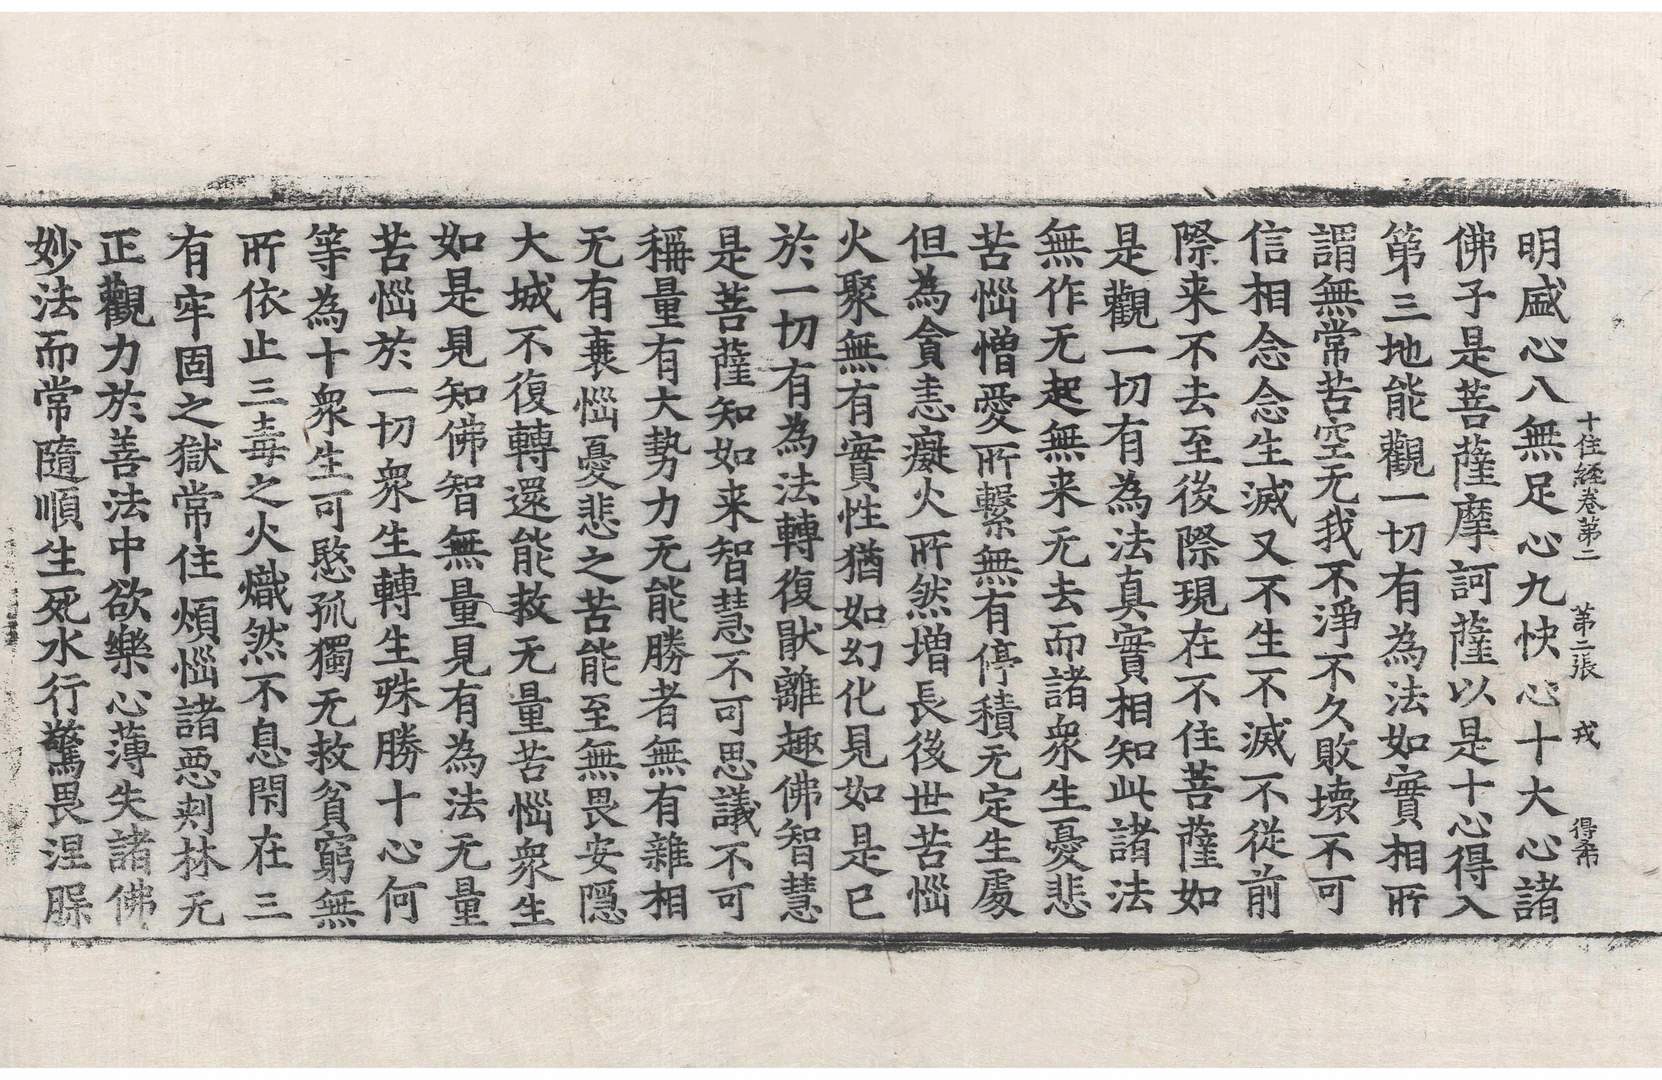 十住経卷第二　第二張　戎　得希
明盛心八無足心九快心十大心諸
佛子是菩薩摩訶薩以是十心得入
第三地能觀一切有為法如實相所
謂無常苦空无我不淨不久敗壞不可
信相念念生滅又不生不滅不從前
際来不去至後際現在不住菩薩如
是觀一切有為法真實相知此諸法
無作无起無来无去而諸衆生憂悲
苦惱憎愛所繫無有停積无定生處
但為貪恚癡火所然增長後世苦惱
火聚無有實性猶如幻化見如是已
於一切有為法轉復猒離趣佛智慧
是菩薩知如来智慧不可思議不可
稱量有大勢力无能勝者無有雜相
无有衰惱憂悲之苦能至無畏安隱
大城不復轉還能救无量苦惱衆生
如是見知佛智無量見有為法无量
苦惱於一切衆生轉生殊勝十心何
等為十衆生可愍孤獨无救貧窮無
所依止三毒之火熾然不息閇在三
有牢固之獄常住煩惱諸惡刺林无
正觀力於善法中欲樂心薄失諸佛
妙法而常隨順生死水行驚畏涅槃